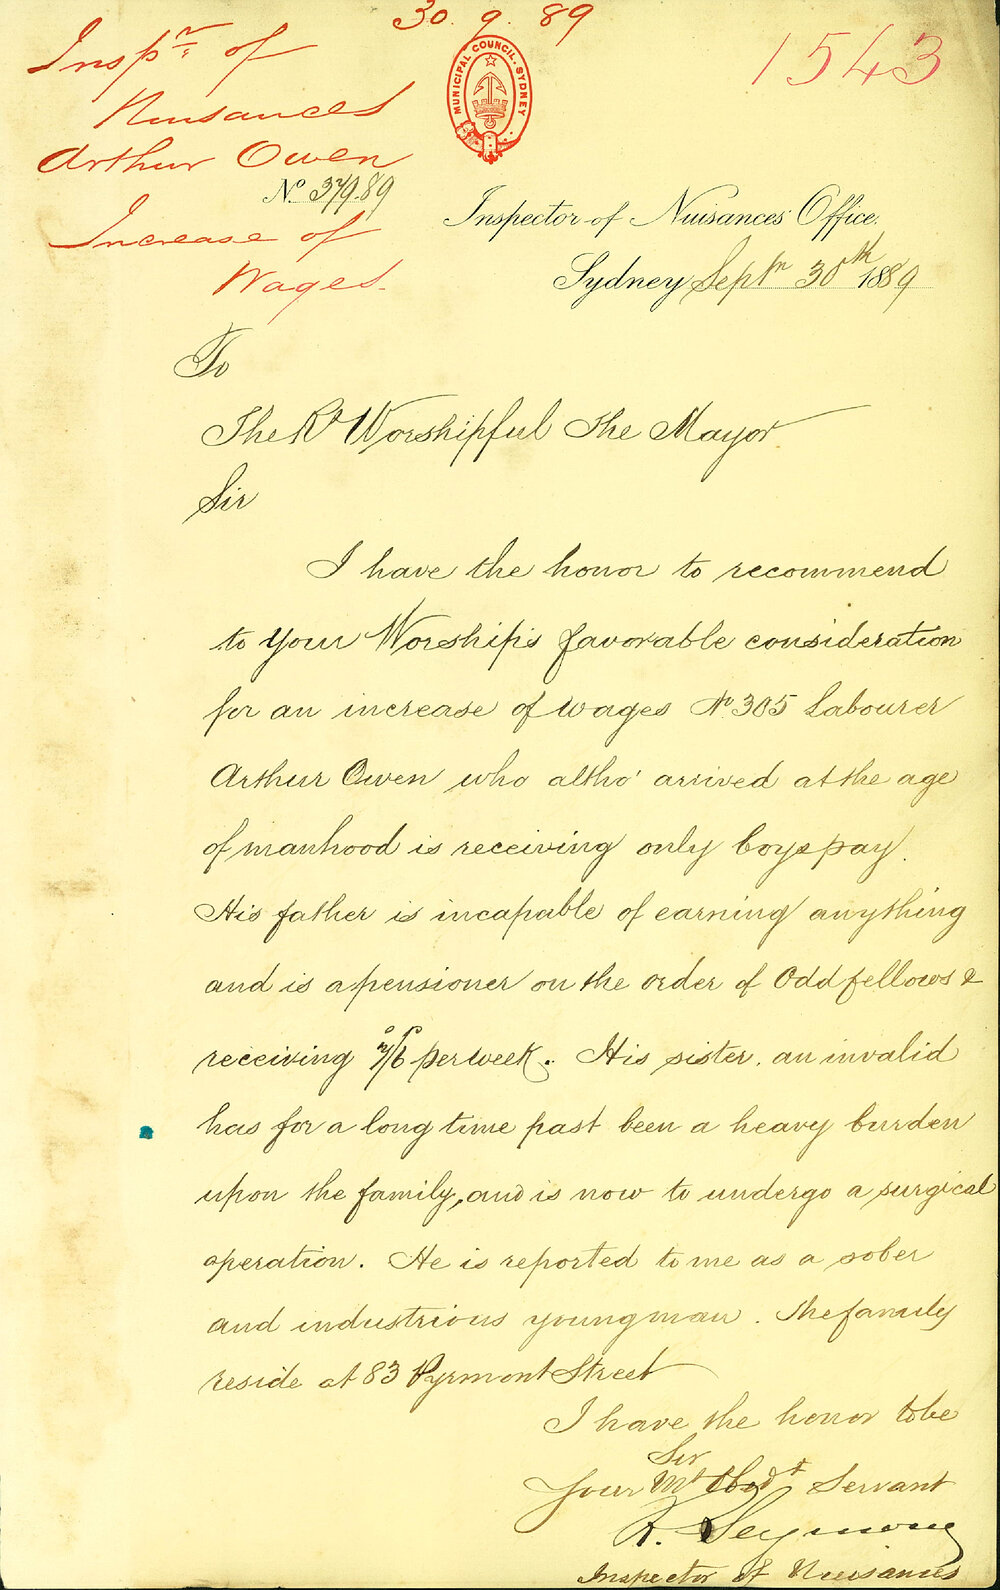 30. 9. 89
Insp.r of
Nuisances
Arthur Owen
Increase of
Wages.
MUNICIPAL COUNCIL. SYDNEY
1543
No. 379.89
Inspector of Nuisances Office.
Sydney Septr 30th 1889
To
The Rt Worshipful The Mayor
Sir
I have the honor to recommend
to Your Worship's favorable consideration
for an increase of wages No 305 Labourer
Arthur Owen who altho' arrived at the age
of manhood is receiving only boys pay.
His father is incapable of earning anything
and is a pensioner on the order of Oddfellows &
receiving per week. His sister, an invalid
has for a long time past been a heavy burden
upon the family, and is now to undergo a surgical
operation. He is reported to me as a sober
and industrious young man. The family
reside at 83 Pyrmont Street
I have the honor to be
Sir
Your Mt Obdt Servant
R. Seymour
Inspector of Nuisances